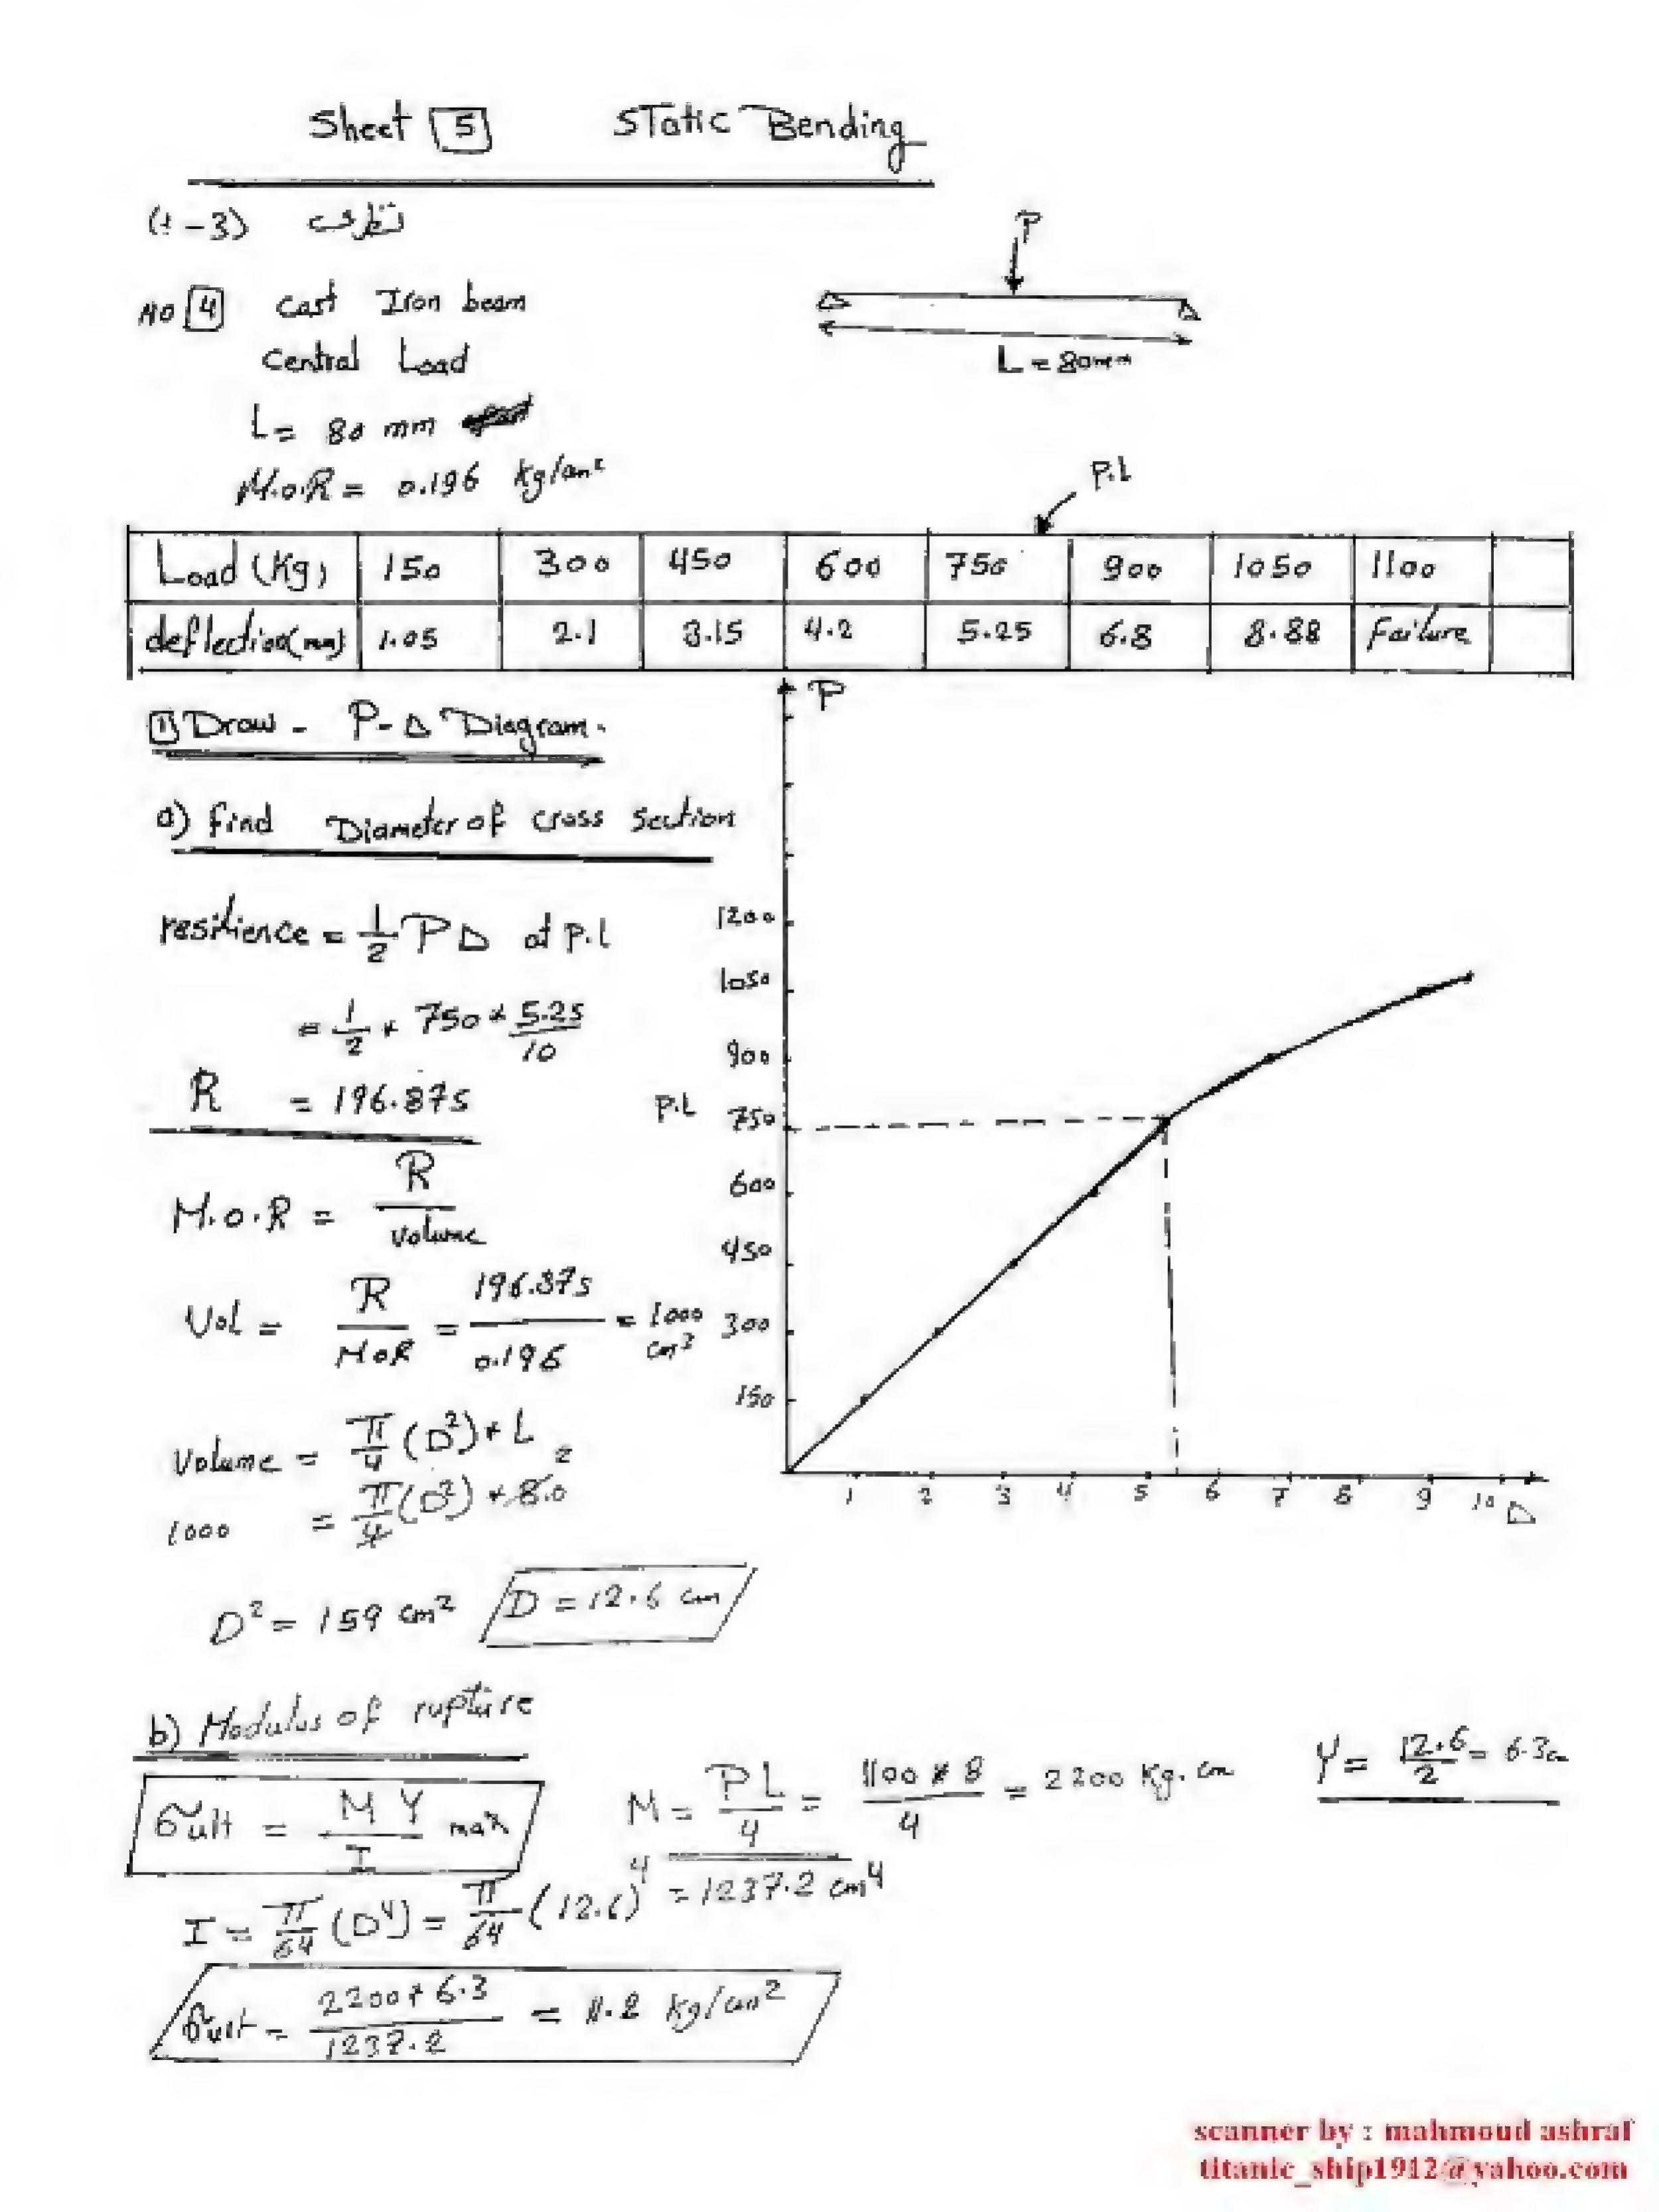 Sheet 5 Static Bending
(1-3) نظرى
NO 4 Cast Iron beam
Central Load
L = 80 mm
M.O.R = 0.196 Kg/cm²
P
L = 80mm
P.L
Load (Kg) 150 300 450 600 750 900 1050 1100
deflection(mm) 1.05 2.1 3.15 4.2 5.25 6.8 8.88 Failure
1 Draw - P-Δ Diagram.
a) find Diameter of cross section
resilience = 1/2 P Δ at P.L
= 1/2 * 750 * 5.25/10
R = 196.875
M.O.R = R/Volume
Vol = R/MOR = 196.875/0.196 = 1000 cm³
Volume = π/4 (D²) * L
1000 = π/4 (D²) * 8.0
D² = 159 cm² D = 12.6 cm
P
1200
1050
900
P.L 750
600
450
300
150
1 2 3 4 5 6 7 8 9 10 Δ
b) Modulus of rupture
σult = M Y/I max M = PL/4 = 1100 * 8/4 = 2200 Kg.cm Y = 12.6/2 = 6.3cm
I = π/64 (D⁴) = π/64 (12.6)⁴ = 1237.2 cm⁴
σult = 2200 * 6.3/1237.2 = 11.2 Kg/cm²
scanner by : mahmoud ashraf
titanic_ship1912@yahoo.com